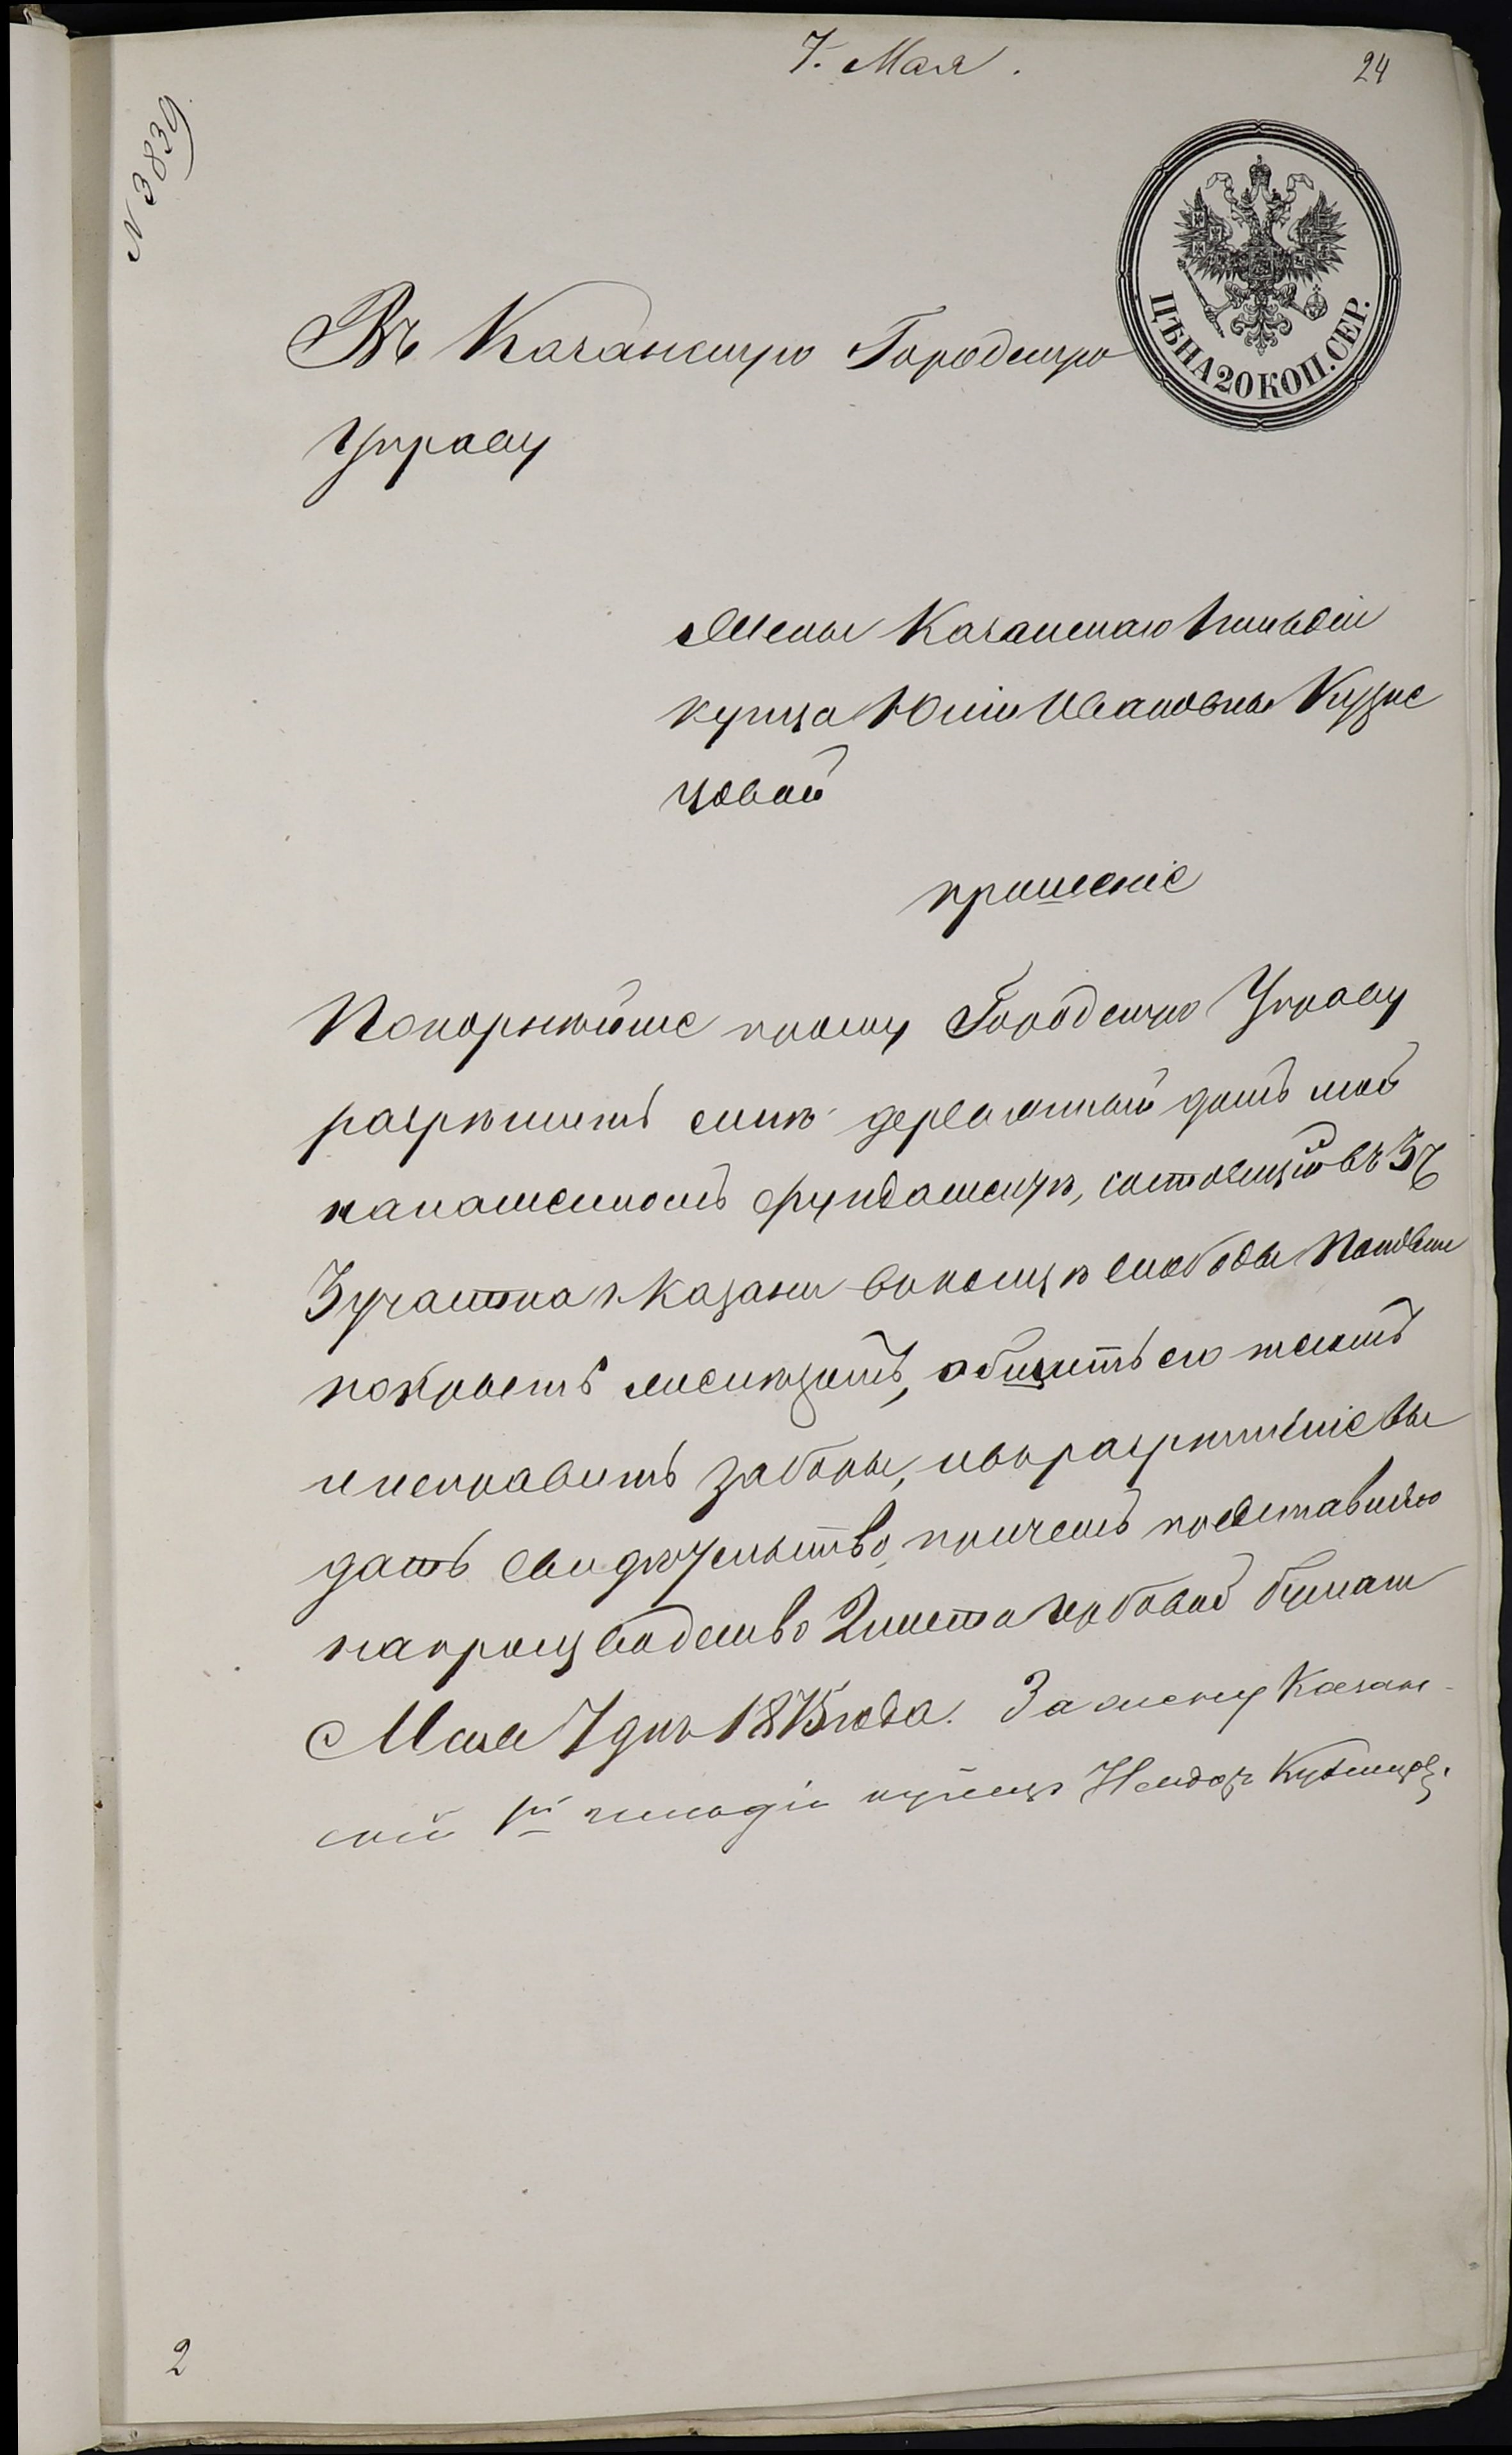 7. Мая.
24
N 3839
ЦѢНА 20 КОП. СЕР.
Въ Казанскую Городскую
Управу
Жены Казанскаго 1 гильдіи
купца Юліи Ивановны Кузне
цовой
прошеніе
Покорнѣйше прошу Городскую Управу
разрѣшить мнѣ деревянный домъ мой
на каменномъ фундаментѣ, состоящій въ 3 ч
3 участка г. Казани
покрыть желѣзомъ, обшить его тесомъ
и исправить заборы, и въ разрѣшеніе вы
дать свидѣтельство, причемъ представляю
на производство 2 листа гербовой бумаги
Мая 7 дня 1875 года. За жену Казан-
ской 1й гильдіи купецъ Кузнецовъ.
2